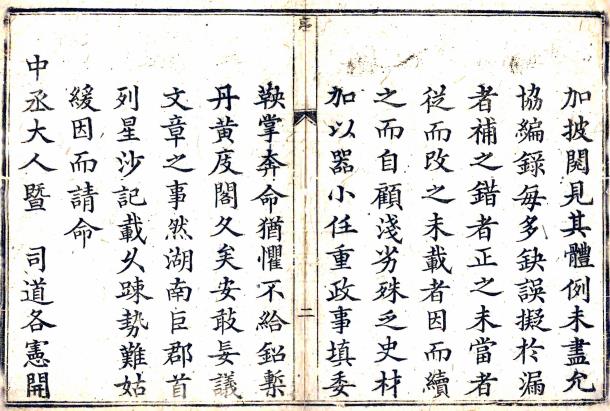 加披閱見其體例未盡允
協編錄每多缺誤擬於漏
者補之錯者正之未當者
從而改之未載者因而續
之而自顧淺劣殊乏史材
加以器小任重政事填委
序
二
鞅掌奔命猶懼不給鉛槧
丹黃庋閣久矣安敢妄議
文章之事然湖南巨郡首
列星沙記載久踈勢難姑
緩因而請命
中丞大人暨 司道各憲開